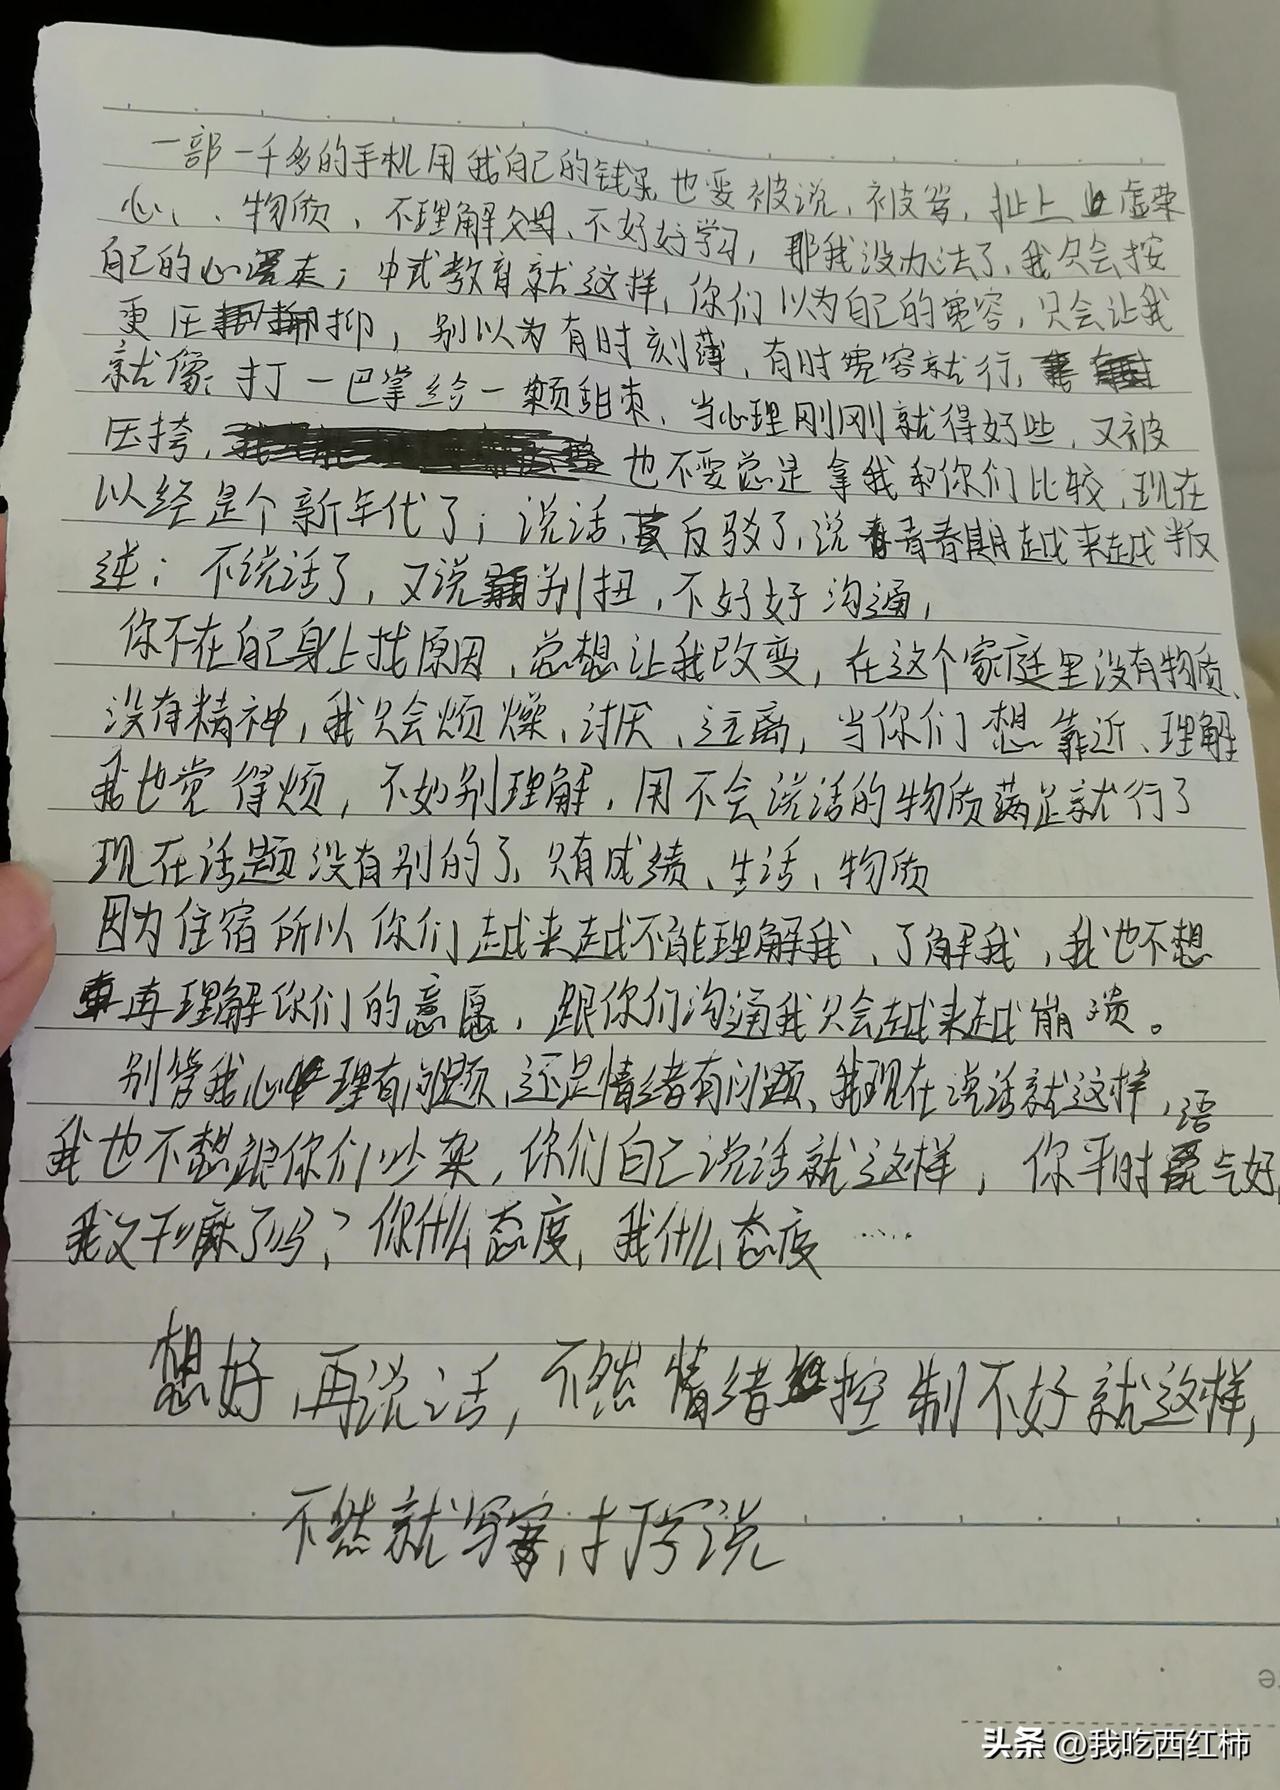 一部一千多的手机用我自己的钱买也要被说、被骂，扯上虚荣
心、、物质、不理解父母、不好好学习，那我没办法了、我只会按
自己的心里走；中式教育就这样，你们以为自己的宽容，只会让我
更压抑，别以为有时刻薄，有时宽容就行，
就像：打一巴掌给一颗甜枣、当心理刚刚就得好些，又被
压垮，也不要总是拿我和你们比较，现在
以经是个新年代了；说话、反驳了，说青春期越来越叛
逆：不说话了，又说别扭，不好好沟通，
你不在自己身上找原因，总想让我改变，在这个家庭里没有物质、
没有精神，我只会烦燥、讨厌、远离，当你们想靠近、理解
我也觉得烦，不如别理解，用不会说话的物质满足就行了
现在话题没有别的了、只有成绩、生活、物质
因为住宿所以你们越来越不能理解我、了解我，我也不想
再理解你们的意愿，跟你们沟通我只会越来越崩溃。
别管我心理有问题、还是情绪有问题、我现在说话就这样，
我也不想跟你们吵架，你们自己说话就这样，你平时语气好，
我又干嘛了吗？你什么态度，我什么态度……
想好再说话，不然情绪控制不好就这样，
不然就写字，打字说
头条 @我吃西红柿